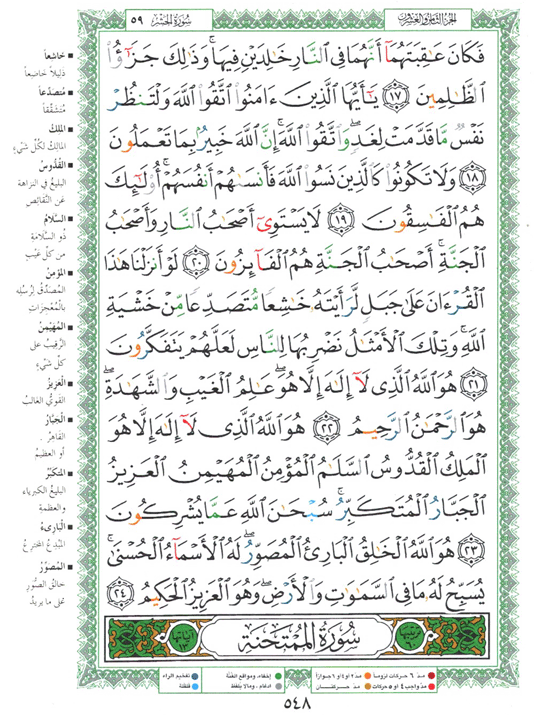 الجزء الثامن والعشرون
سورة الحشر
٥٩
فَكَانَ عَـٰقِبَتَهُمَآ أَنَّهُمَا فِى ٱلنَّارِ خَـٰلِدَيْنِ فِيهَا ۚ وَذَٰلِكَ جَزَٰٓؤُا۟
ٱلظَّـٰلِمِينَ ١٧ يَـٰٓأَيُّهَا ٱلَّذِينَ ءَامَنُوا۟ ٱتَّقُوا۟ ٱللَّهَ وَلْتَنظُرْ
نَفْسٌ مَّا قَدَّمَتْ لِغَدٍ ۖ وَٱتَّقُوا۟ ٱللَّهَ ۚ إِنَّ ٱللَّهَ خَبِيرٌۢ بِمَا تَعْمَلُونَ
١٨ وَلَا تَكُونُوا۟ كَٱلَّذِينَ نَسُوا۟ ٱللَّهَ فَأَنسَىٰهُمْ أَنفُسَهُمْ ۚ أُو۟لَـٰٓئِكَ
هُمُ ٱلْفَـٰسِقُونَ ١٩ لَا يَسْتَوِىٓ أَصْحَـٰبُ ٱلنَّارِ وَأَصْحَـٰبُ
ٱلْجَنَّةِ ۚ أَصْحَـٰبُ ٱلْجَنَّةِ هُمُ ٱلْفَآئِزُونَ ٢٠ لَوْ أَنزَلْنَا هَـٰذَا
ٱلْقُرْءَانَ عَلَىٰ جَبَلٍ لَّرَأَيْتَهُۥ خَـٰشِعًا مُّتَصَدِّعًا مِّنْ خَشْيَةِ
ٱللَّهِ ۚ وَتِلْكَ ٱلْأَمْثَـٰلُ نَضْرِبُهَا لِلنَّاسِ لَعَلَّهُمْ يَتَفَكَّرُونَ
٢١ هُوَ ٱللَّهُ ٱلَّذِى لَآ إِلَـٰهَ إِلَّا هُوَ ۖ عَـٰلِمُ ٱلْغَيْبِ وَٱلشَّهَـٰدَةِ ۖ
هُوَ ٱلرَّحْمَـٰنُ ٱلرَّحِيمُ ٢٢ هُوَ ٱللَّهُ ٱلَّذِى لَآ إِلَـٰهَ إِلَّا هُوَ
ٱلْمَلِكُ ٱلْقُدُّوسُ ٱلسَّلَـٰمُ ٱلْمُؤْمِنُ ٱلْمُهَيْمِنُ ٱلْعَزِيزُ
ٱلْجَبَّارُ ٱلْمُتَكَبِّرُ ۚ سُبْحَـٰنَ ٱللَّهِ عَمَّا يُشْرِكُونَ
٢٣ هُوَ ٱللَّهُ ٱلْخَـٰلِقُ ٱلْبَارِئُ ٱلْمُصَوِّرُ ۖ لَهُ ٱلْأَسْمَآءُ ٱلْحُسْنَىٰ ۚ
يُسَبِّحُ لَهُۥ مَا فِى ٱلسَّمَـٰوَٰتِ وَٱلْأَرْضِ ۖ وَهُوَ ٱلْعَزِيزُ ٱلْحَكِيمُ ٢٤
ترتيبها ٦٠
سُورَةُ المُمْتَحنَة
آياتها ١٣
خاشعاً
ذليلاً خاضعاً
متصدّعاً
متشقّقاً
الملك
المالك لكلّ شيء
القدّوس
البليغ في النزاهة
عن النّقائص
السّلام
ذو السّلامة
من كلّ عيب
المؤمن
المصدّق لرسله
بالمعجزات
المهيمن
الرّقيب على
كلّ شيء
العزيز
القويّ الغالب
الجبّار
القاهر
أو العظيم
المتكبّر
البليغ الكبرياء
والعظمة
البارئ
المبدع المخترع
المصوّر
خالق الصّور
على ما يريد
مدّ ٦ حركات لزوماً
مدّ ٢ أو ٤ أو ٦ جوازاً
إخفاء، ومواقع الغنّة
تفخيم الراء
مدّ واجب ٤ أو ٥ حركات
مدّ حركتان
إدغام، وما لا يلفظ
قلقلة
٥٤٨